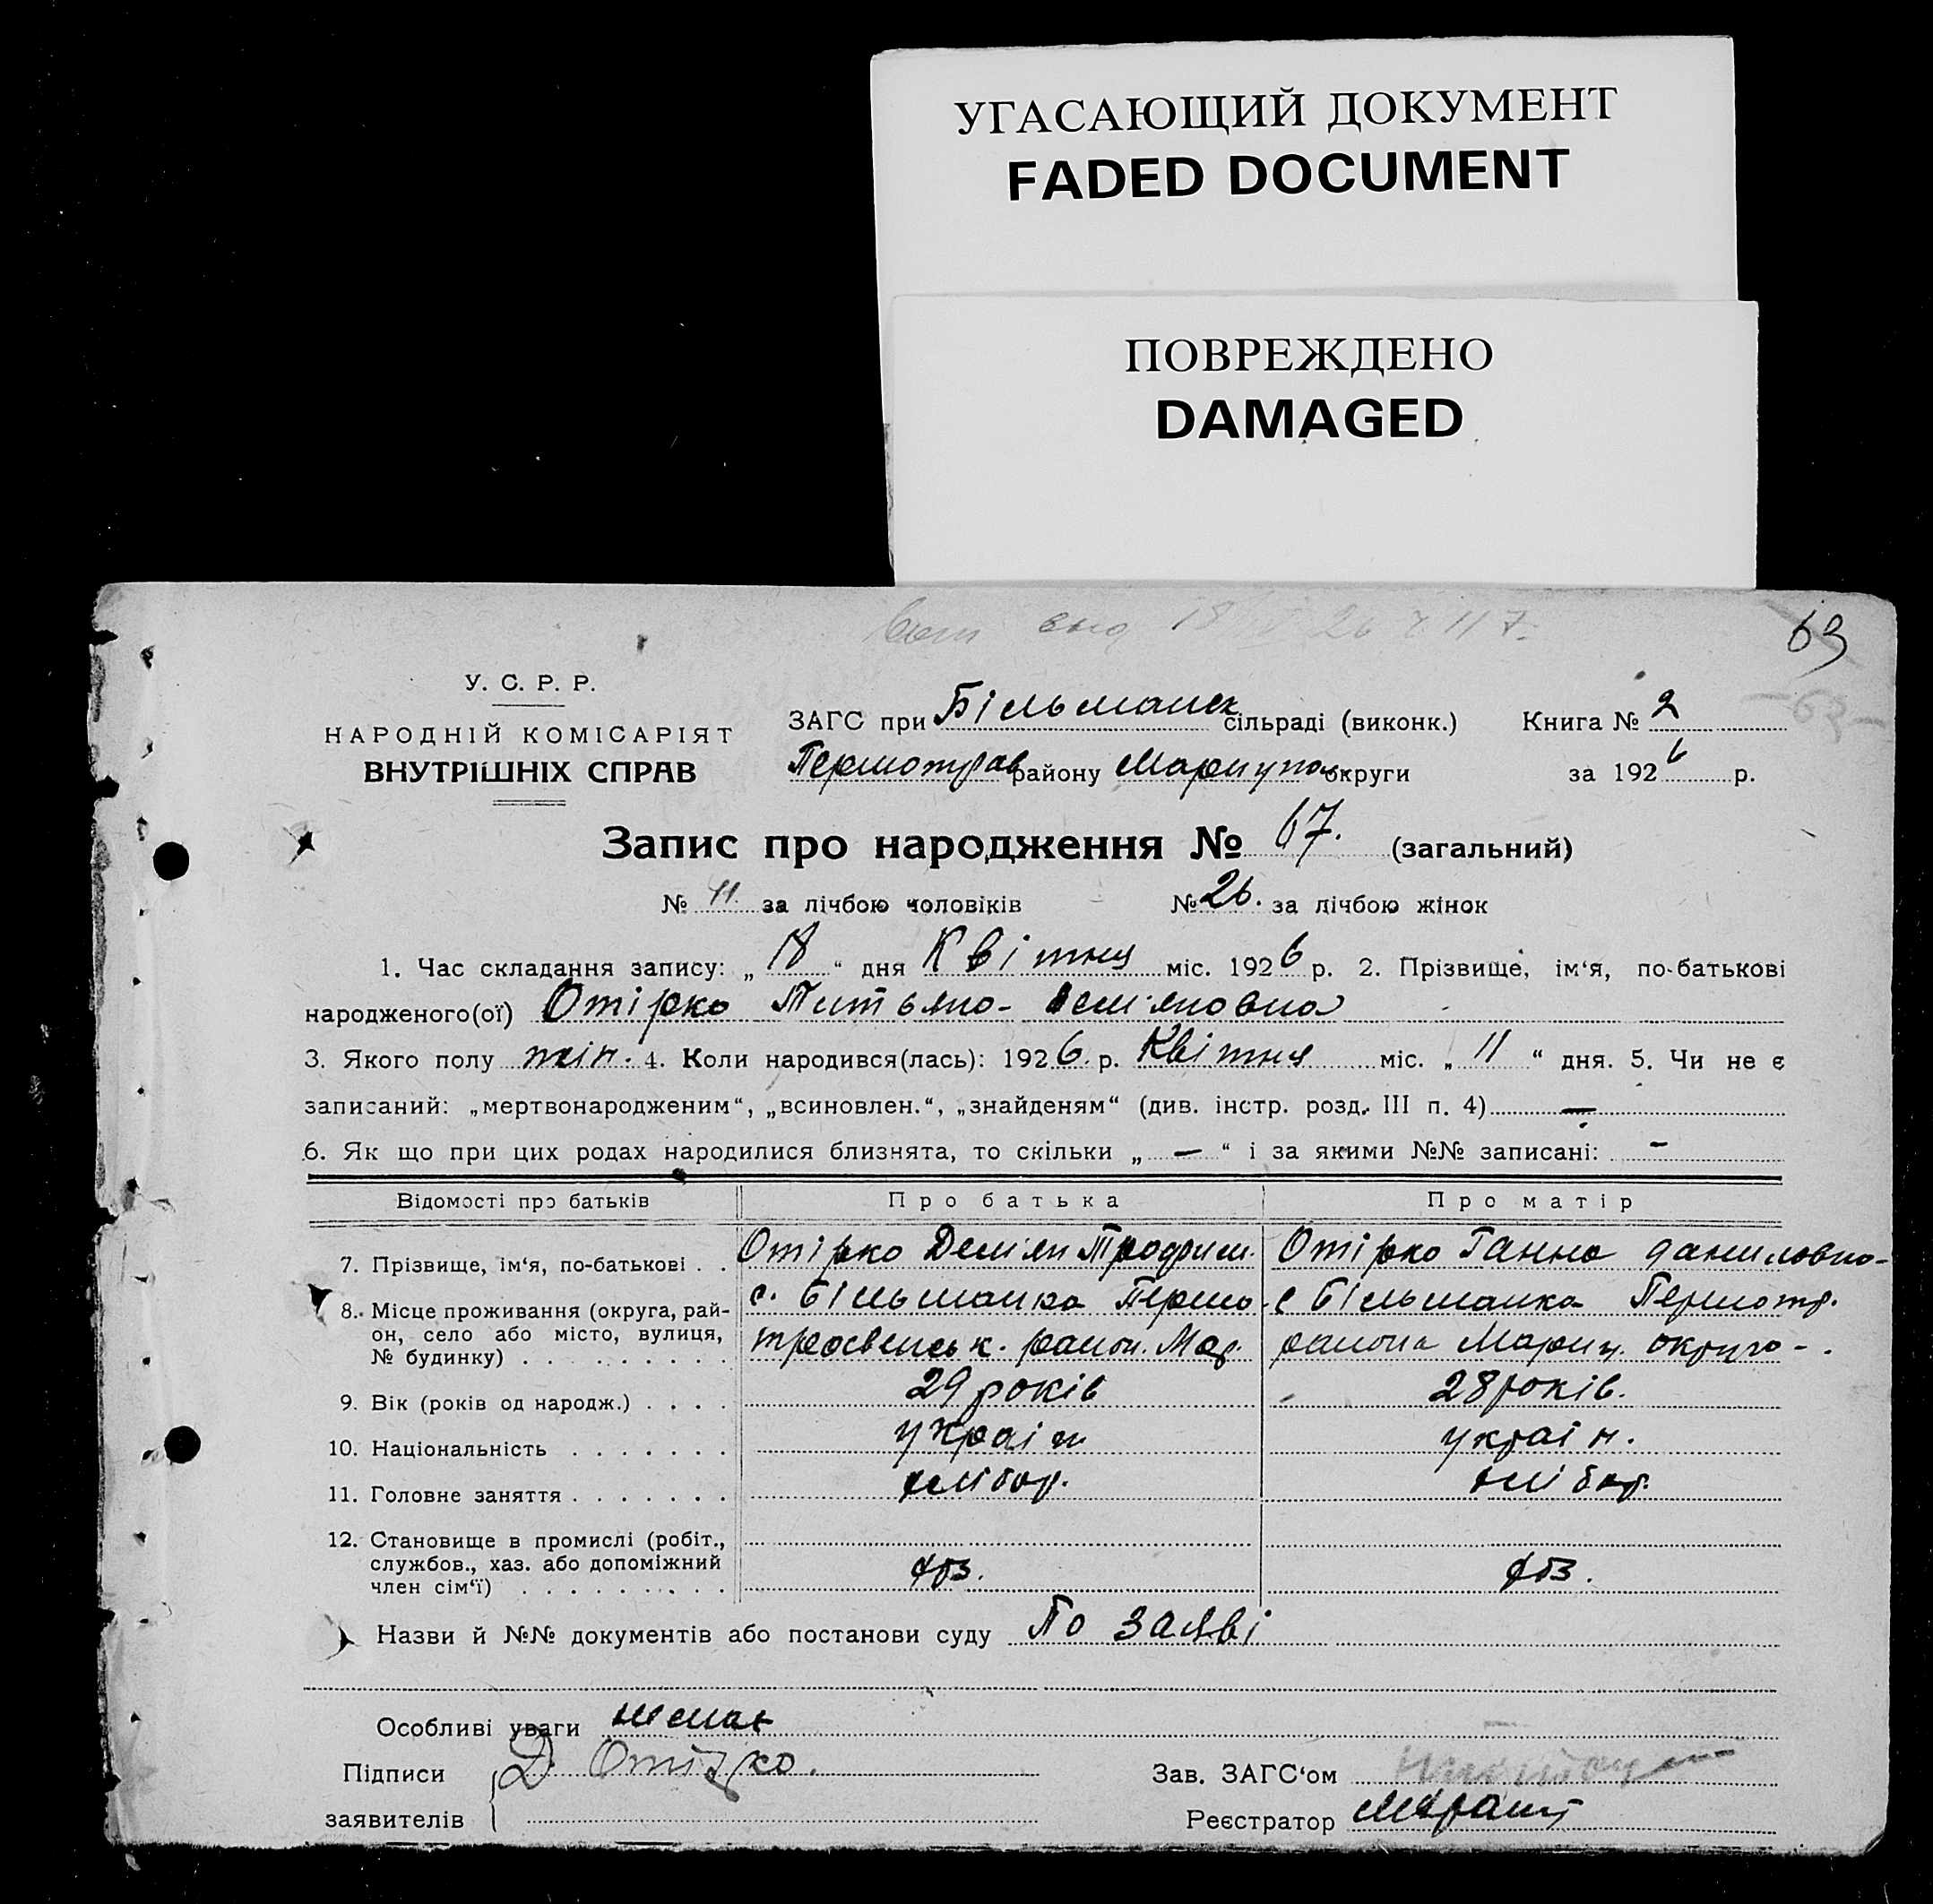 УГАСАЮЩИЙ ДОКУМЕНТ
FADED DOCUMENT
ПОВРЕЖДЕНО
DAMAGED
63
У. С. Р. Р.
НАРОДНІЙ КОМІСАРІЯТ
ВНУТРІШНІХ СПРАВ
ЗАГС при Більманск сільраді (виконк.) Книга № 2
Першотрав району Маріупол округи за 1926 р.
Запис про народження № 67. (загальний)
№ 41 за лічбою чоловіків № 26. за лічбою жінок
1. Час складання запису: „ 18 “ дня Квітня міс. 1926 р. 2. Прізвище, ім‘я, по-батькові
народженого(ої) Отірко Титьяна Демяновна
3. Якого полу жін. 4. Коли народився(лась): 1926. р. Квітня міс. „ 11 “ дня. 5. Чи не є
записаний: „мертвонародженим“, „всиновлен.“, „знайденям“ (див. інстр. розд. III п. 4) —
6. Як що при цих родах народилися близнята, то скільки „ — “ і за якими №№ записані: -
Відомості про батьків Про батька Про матір
7. Прізвище, ім‘я, по-батькові . . Отірко Демян Отірко Ганна даниловна-
8. Місце проживання (округа, рай- с. Більманка Першо с Більманка Першотр.
он, село або місто, вулиця, № будинку) . . . . . . . . . травенськ. район. Мар. района Мариуп. округа - .
9. Вік (років од народж.) . . . . 29 років 28 років.
10. Національність . . . . . . . україн україн.
11. Головне заняття . . . . . . . хлібор. хлібор.
12. Становище в промислі (робіт.,
службов., хаз. або допоміжний
член сім‘ї) . . . . . . . . .
Назви й №№ документів або постанови суду По заяві
Особливі уваги немає
Підписи Д Отірко. Зав. ЗАГС‘ом
заявителів Реєстратор